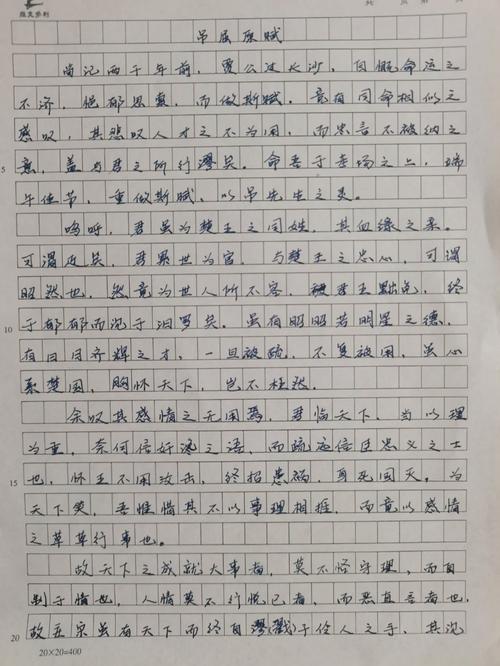 吊屈原赋
尚记两千年前，贾公过长沙，自慨命运之
不济，悒郁思蹇，而做斯赋，竟有同命相似之
感叹，其悲叹人才之不为用，而忠言不被纳之
意，盖与君之所行谬矣。命吾于考场之上，端
午佳节，重做斯赋，以吊先生之灵。
呜呼，君虽为楚王之同姓，其血缘之亲，
可谓近矣，君累世为官，与楚王之忠心，可谓
昭然也，然竟为世人所不容，君王黜免，终
于郁郁而沉于汨罗矣。虽有昭昭若明星之德，
有日月齐辉之才，一旦被疏，不复被用，虽心
系楚国，胸怀天下，岂不枉然。
余叹其感情之无用焉，君临天下，当以理
为重，奈何信奸谗之语，而疏远信臣忠义之士
也，怀王不用攻击，终招患祸，身死国灭，为
天下笑，吾惟惜其不以事理相推，而竟以感情
之草草行事也。
故天下之成就大事者，莫不恪守理，而自
制于情也，人情莫不行悦己者，而恶直言者也，
故玄宗虽有天下而终自谬(戮)于佞人之手，其沉
5
10
15
20
20×20=400